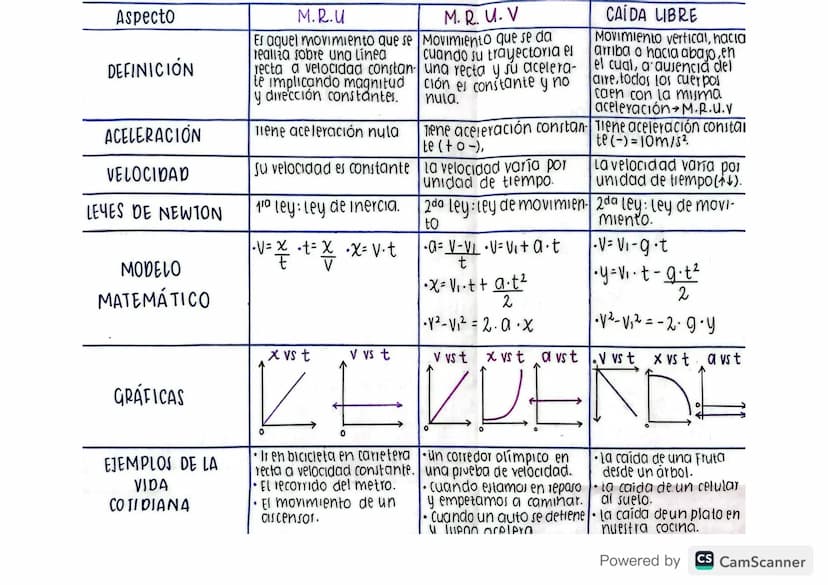 Aspecto
M.R.U
M.R.U.V
CAÍDA LIBRE
DEFINICIÓN
Es aquel movimiento que se
realiza sobre una línea
recta a velocidad constan-
te implicando magnitud
y dirección constantes.
Movimiento que se da
cuando su trayectoria es
una recta y su acelera-
ción es constante y no
nula.
Movimiento vertical, hacia
arriba o hacia abajo, en
el cual, a ausencia del
aire, todos los cuerpos
caen con la misma
aceleración→M.R.U.V
ACELERACIÓN
Tiene aceleración nula
Tiene aceleración constan-
te (+ o -),
Tiene aceleración constan
te (-) = 10m/s².
VELOCIDAD
Su velocidad es constante
La velocidad varía por
unidad de tiempo.
La velocidad varía por
unidad de tiempo(↑↓).
LEYES DE NEWTON
1ra ley: Ley de Inercia.
2da ley: ley de movimien-
to
2da ley: ley de movi-
miento.
MODELO
MATEMÁTICO
•V= x/t •t= x/V •x= V·t
•a= V-V₁/t •V= V₁+a·t
•x= V₁·t+ a·t²/2
•V²-V₁² = 2·a·x
•V= V₁-g·t
•y=V₁·t- g·t²/2
•V²-V₁² = -2·g·y
GRÁFICAS
x vs t
v vs t
v vs t
x vs t
a vs t
v vs t
x vs t
a vs t
0
0
0
0
0
0
0
EJEMPLOS DE LA
VIDA
COTIDIANA
• Ir en bicicleta en carretera
recta a velocidad constante.
• El recorrido del metro.
• El movimiento de un
ascensor.
• Un corredor olímpico en
una prueba de velocidad.
• Cuando estamos en reposo
y empezamos a caminar.
• Cuando un auto se detiene
y luego acelera
• La caída de una fruta
desde un árbol.
• La caída de un celular
al suelo.
• La caída de un plato en
nuestra cocina.
Powered by CS CamScanner